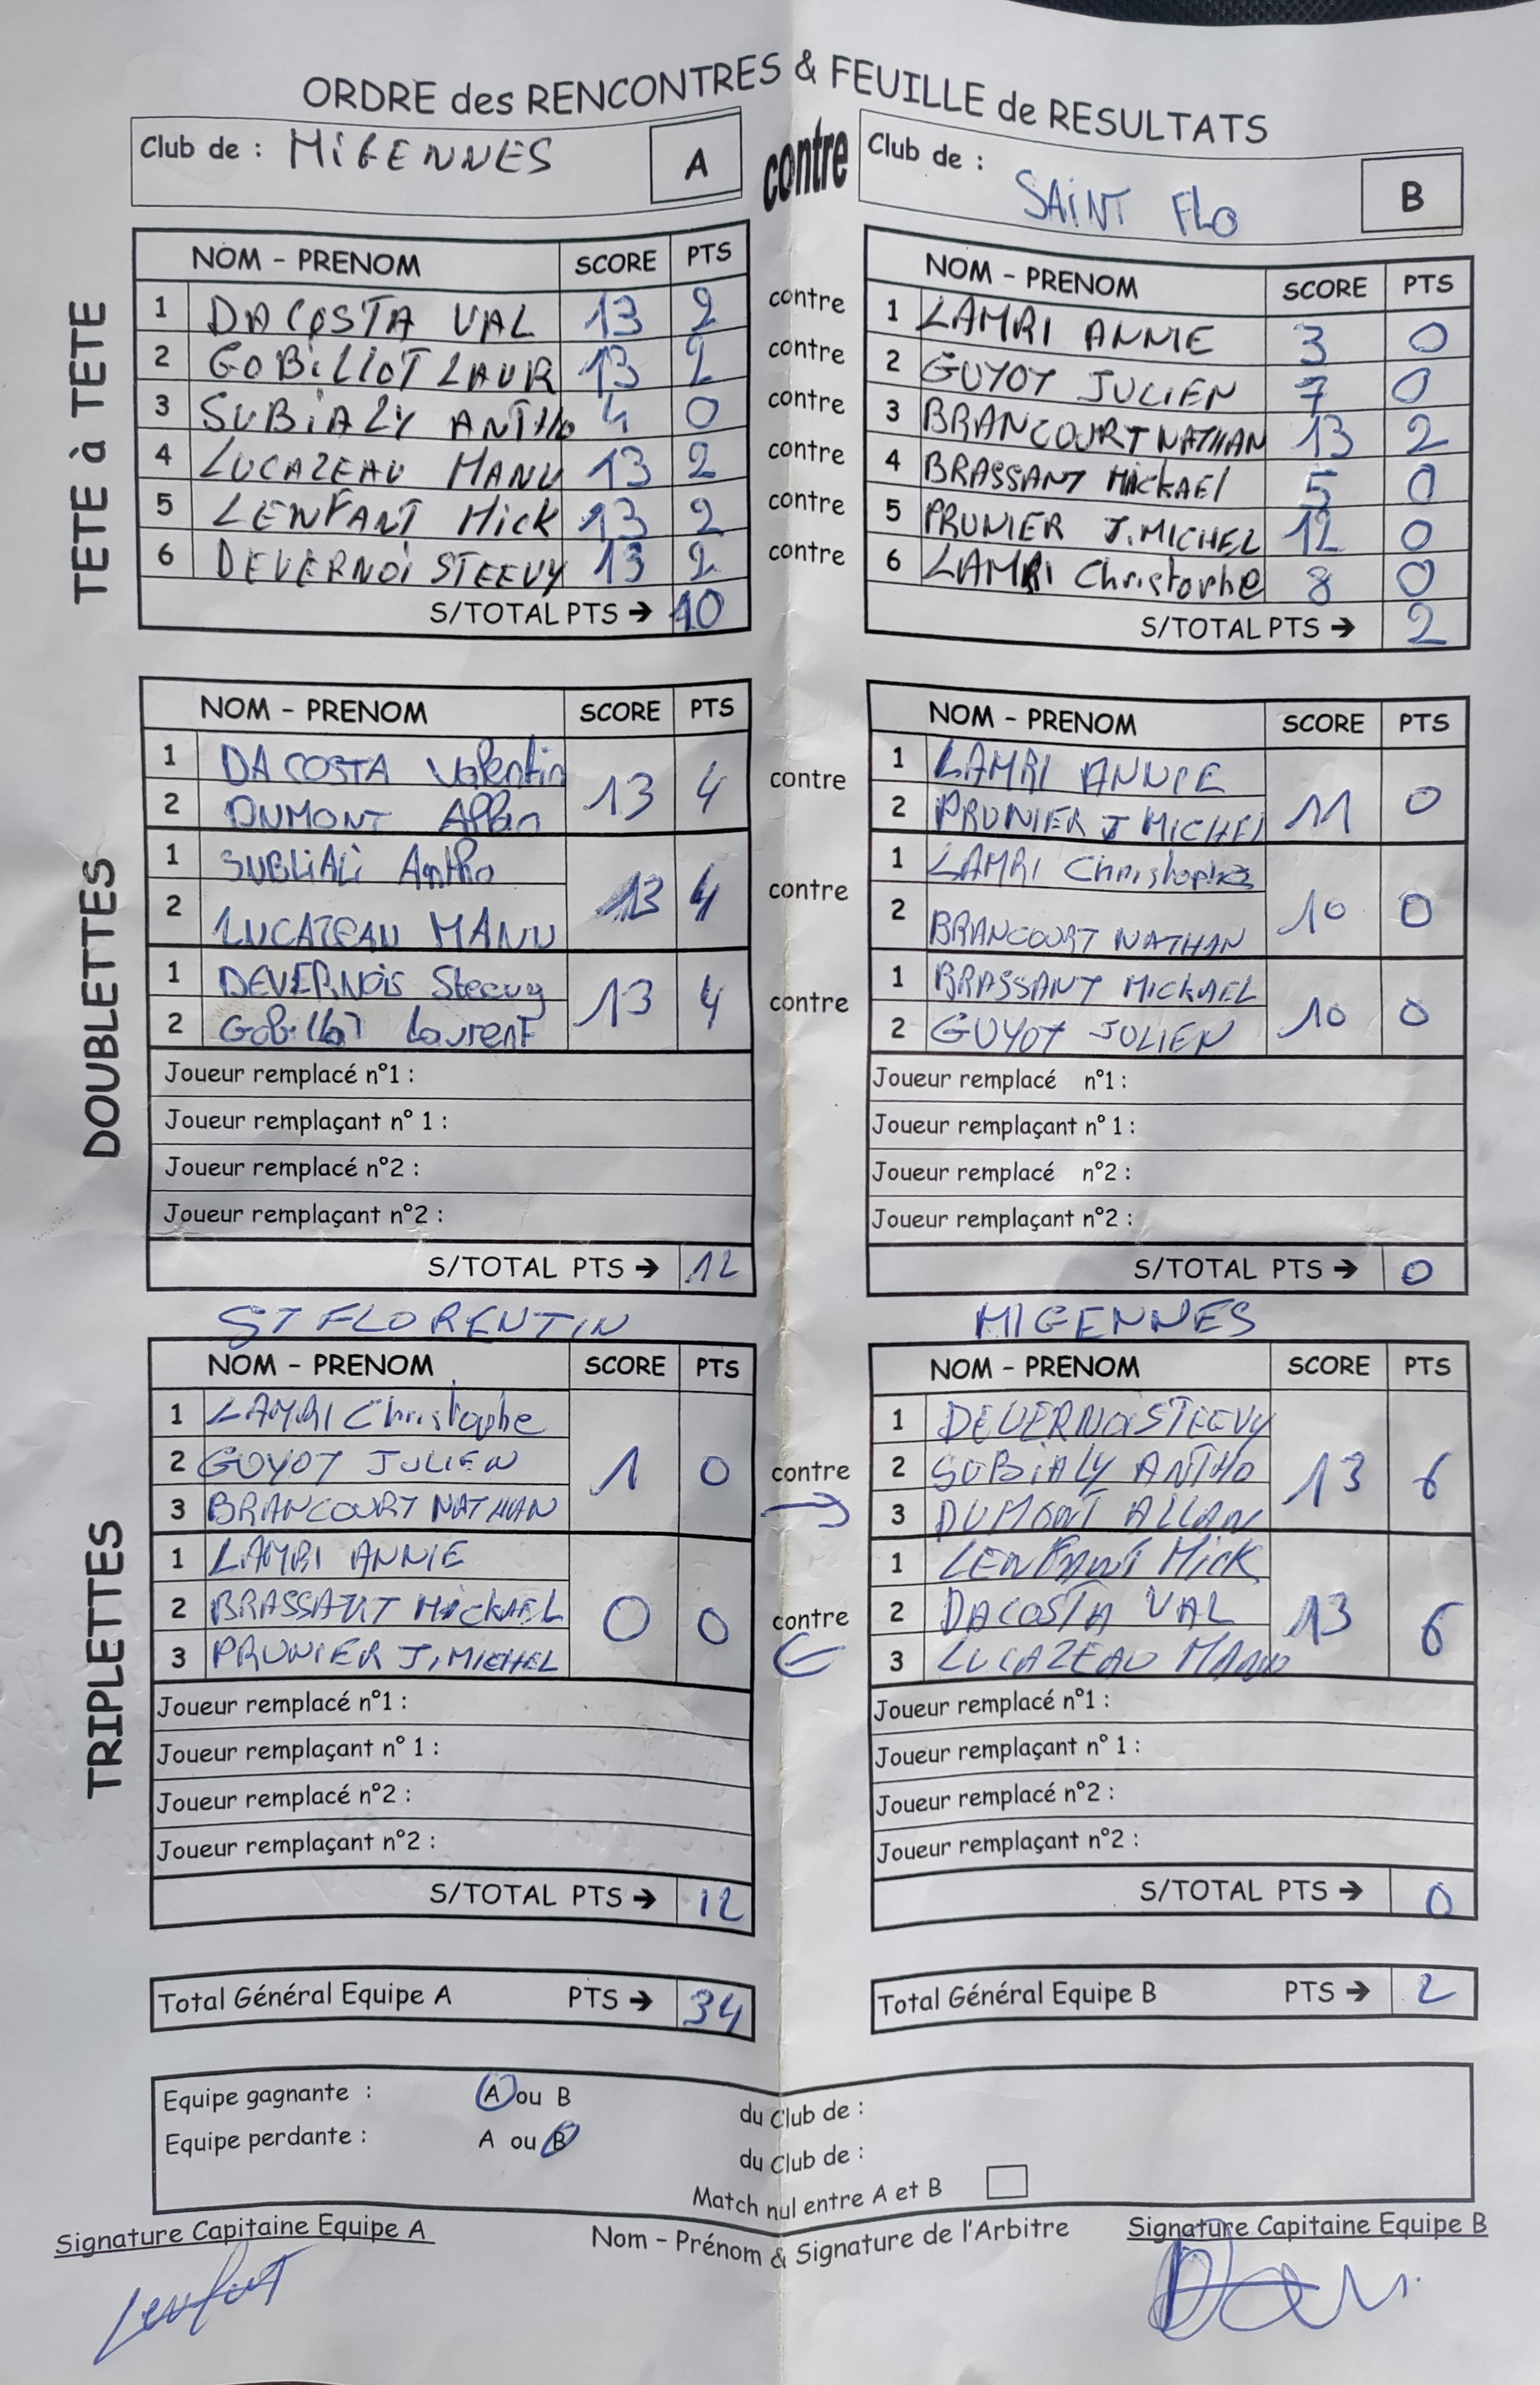 ORDRE des RENCONTRES & FEUILLE de RESULTATS
Club de : MiGENNES A contre Club de : SAiNT FLO B
TETE à TETE
NOM - PRENOM SCORE PTS NOM - PRENOM SCORE PTS
1 DACOSTA VAL 13 2 contre 1 LAMRI ANNIE 3 0
2 GOBiLLOT LAUR 13 2 contre 2 GUYOT JULIEN 7 0
3 SUBiALY ANTHO 4 0 contre 3 BRANCOURT NATHAN 13 2
4 LUCAZEAU MANU 13 2 contre 4 BRASSANT MickAEl 5 0
5 LENFANT Mick 13 2 contre 5 PRUNIER J.MICHEL 12 0
6 DEVERNOi STEEVY 13 2 contre 6 LAMRI Christophe 8 0
S/TOTAL PTS → 10 S/TOTAL PTS → 2
DOUBLETTES
NOM - PRENOM SCORE PTS NOM - PRENOM SCORE PTS
1 DA COSTA Valentin 13 4 contre 1 LAMRI ANNIE 11 0
2 DUMONT Allan 2 PRUNIER J MICHEL
1 SUBLiALi Antho 13 4 contre 1 LAMRI Christophe 10 0
2 LUCAZEAU MANU 2 BRANCOURT NATHAN
1 DEVERNOiS Steevy 13 4 contre 1 BRASSANT MICKAEL 10 0
2 GobilloT LaurenT 2 GUYOT JULIEN
Joueur remplacé n°1 : Joueur remplacé n°1 :
Joueur remplaçant n° 1 : Joueur remplaçant n° 1 :
Joueur remplacé n°2 : Joueur remplacé n°2 :
Joueur remplaçant n°2 : Joueur remplaçant n°2 :
S/TOTAL PTS → 12 S/TOTAL PTS → 0
ST FLORENTIN MIGENNES
TRIPLETTES
NOM - PRENOM SCORE PTS NOM - PRENOM SCORE PTS
1 LAMRI Christophe 1 0 contre 1 DEVERNOiSTEEVY 13 6
2 GUYOT JULIEN 2 SUBiALY ANTHO
3 BRANCOURT NATHAN 3 DUMONT ALLAN
1 LAMRI ANNIE 0 0 contre 1 LENFANT MicK 13 6
2 BRASSANT MICKAEL 2 DACOSTA VAL
3 PRUNIER J.MICHEL 3 LUCAZEAU MANU
Joueur remplacé n°1 : Joueur remplacé n°1 :
Joueur remplaçant n° 1 : Joueur remplaçant n° 1 :
Joueur remplacé n°2 : Joueur remplacé n°2 :
Joueur remplaçant n°2 : Joueur remplaçant n°2 :
S/TOTAL PTS → 12 S/TOTAL PTS → 0
Total Général Equipe A PTS → 34 Total Général Equipe B PTS → 2
Equipe gagnante : A ou B du Club de :
Equipe perdante : A ou B du Club de :
Match nul entre A et B
Signature Capitaine Equipe A Nom - Prénom & Signature de l'Arbitre Signature Capitaine Equipe B